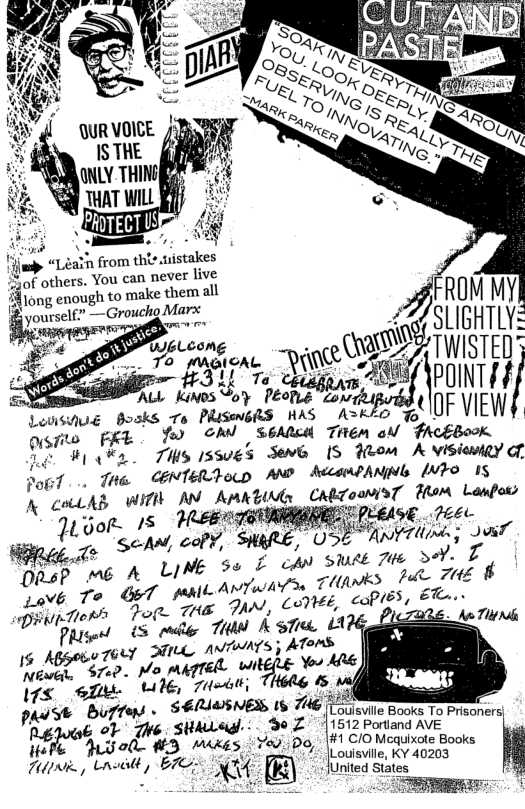 CUT AND
PASTE
DIARY
"SOAK IN EVERYTHING AROUND
YOU. LOOK DEEPLY.
OBSERVING IS REALLY THE
FUEL TO INNOVATING."
—MARK PARKER
OUR VOICE
IS THE
ONLY THING
THAT WILL
PROTECT US
"Learn from the mistakes
of others. You can never live
long enough to make them all
yourself." —Groucho Marx
Words don't do it justice.
Prince Charming
KIT
FROM MY
SLIGHTLY
TWISTED
POINT
OF VIEW
WELCOME
TO MAGICAL
#3!! TO CELEBRATE
ALL KINDS OF PEOPLE CONTRIBUTED
LOUISVILLE BOOKS TO PRISONERS HAS ASKED TO
DISTRO YOU CAN SEARCH THEM ON FACEBOOK
FOR #1 & #2. THIS ISSUE'S SONG IS FROM A VISIONARY CT.
POET... THE CENTERFOLD AND ACCOMPANING INFO IS
A COLLAB WITH AN AMAZING CARTOONIST FROM LOMPOC
FLÜOR IS FREE TO ANYONE. PLEASE FEEL
FREE TO SCAN, COPY, SHARE, USE ANYTHING; JUST
DROP ME A LINE SO I CAN SHARE THE JOY. I
LOVE TO GET MAIL ANYWAYS. THANKS FOR THE $
DONATIONS FOR THE FAN, COFFEE, COPIES, ETC...
PRISON IS MORE THAN A STILL LIFE PICTURE. NOTHING
IS ABSOLUTELY STILL ANYWAYS; ATOMS
NEVER STOP. NO MATTER WHERE YOU ARE
ITS STILL LIFE, THOUGH; THERE IS NO
PAUSE BUTTON. SERIOUSNESS IS THE
REFUGE OF THE SHALLOW... SO I
HOPE FLÜOR #3 MAKES YOU DO,
THINK, LAUGH, ETC.
KIT
Ki
Louisville Books To Prisoners
1512 Portland AVE
#1 C/O Mcquixote Books
Louisville, KY 40203
United States